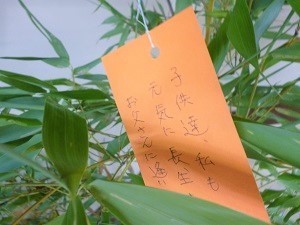 子供達、私も
元気に長生
お父さんに逢